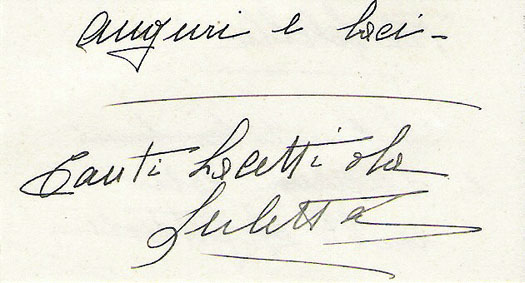 auguri e baci -
Tanti bacetti da